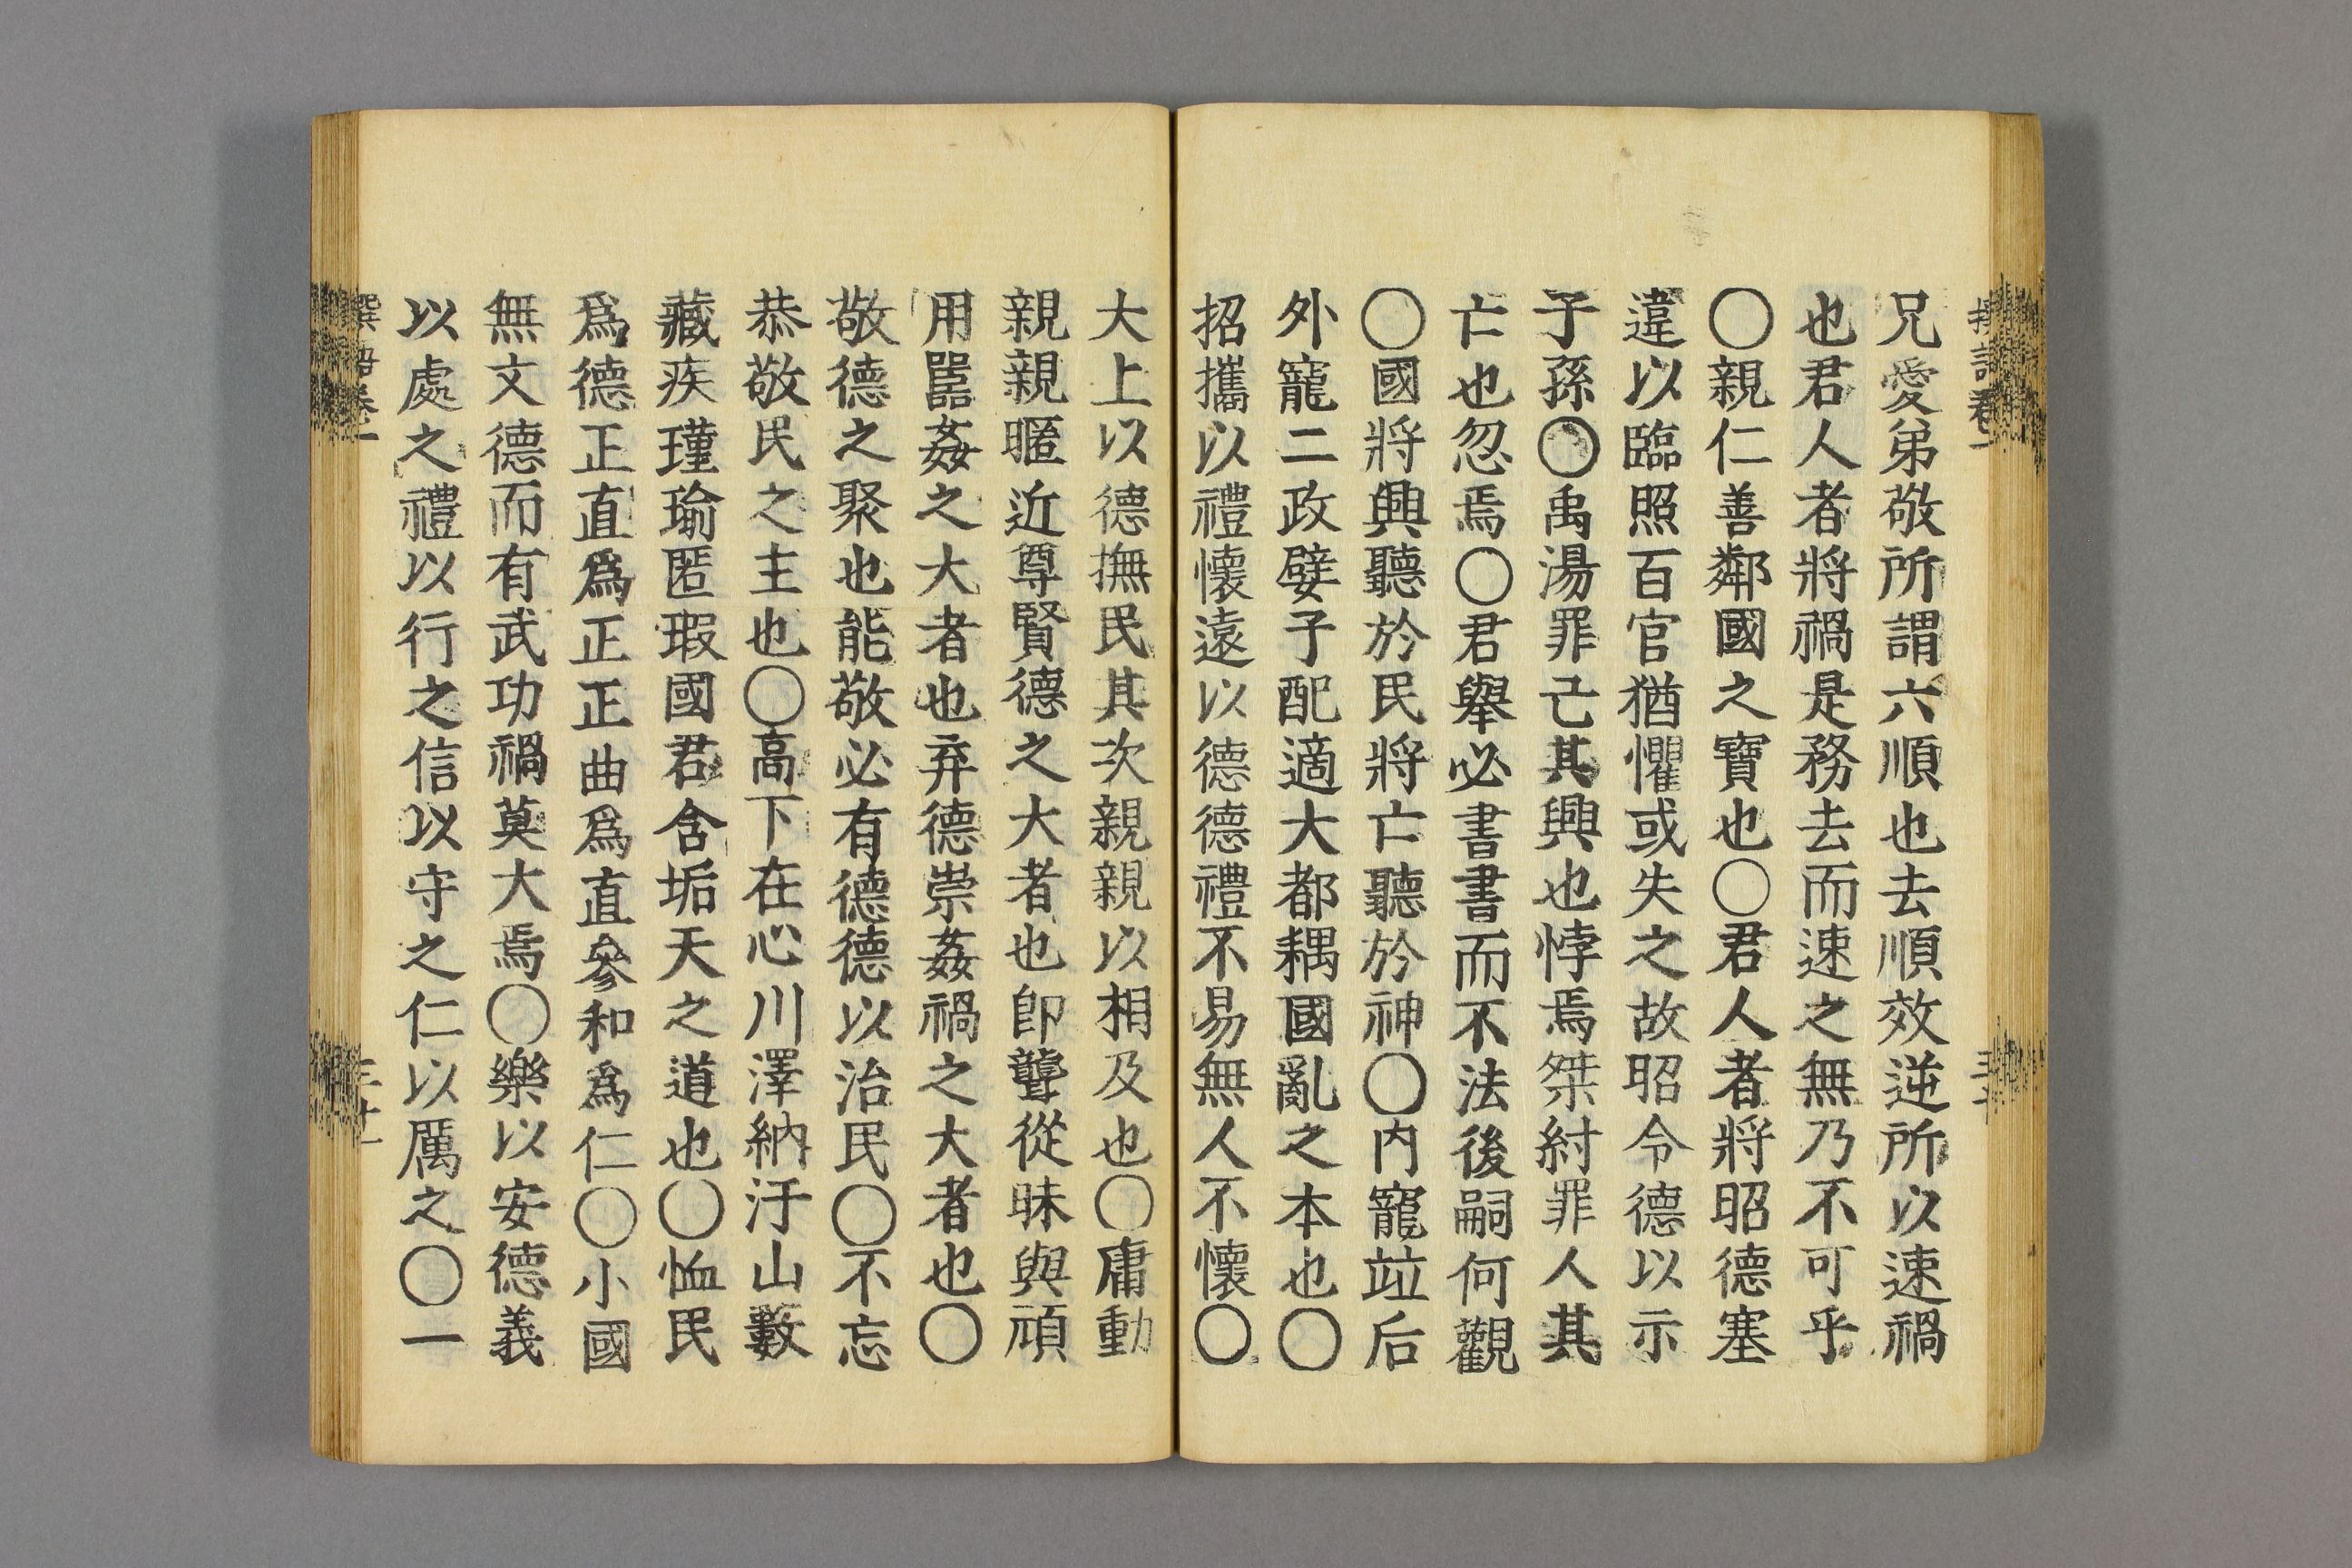 兄愛弟敬所謂六順也去順效逆所以速禍
也君人者將禍是務去而速之無乃不可乎
〇親仁善鄰國之寶也〇君人者將昭德塞
違以臨照百官猶懼或失之故昭令德以示
子孫〇禹湯罪己其興也悖焉桀紂罪人其
亡也忽焉〇君舉必書書而不法後嗣何觀
〇國將興聽於民將亡聽於神〇內寵竝后
外寵二政嬖子配適大都耦國亂之本也〇
招攜以禮懷遠以德德禮不易無人不懷〇
大上以德撫民其次親親以相及也〇庸動
親親暱近尊賢德之大者也卽聾從昧與頑
用嚚姦之大者也弃德崇姦禍之大者也〇
敬德之聚也能敬必有德德以治民〇不忘
恭敬民之主也〇高下在心川澤納汙山藪
藏疾瑾瑜匿瑕國君含垢天之道也〇恤民
爲德正直爲正正曲爲直參和爲仁〇小國
無文德而有武功禍莫大焉〇樂以安德義
以處之禮以行之信以守之仁以厲之〇一